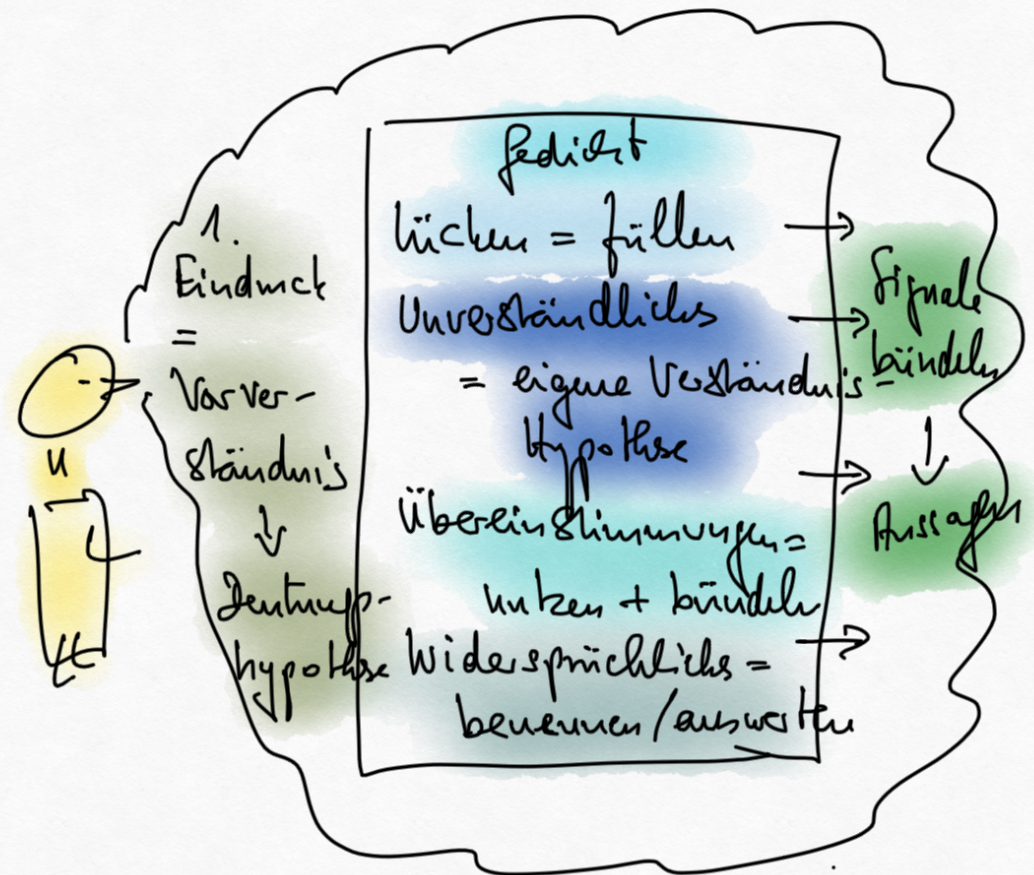 1.
Eindruck
=
Vorver-
ständnis
↓
Deutungs-
hypothese
Gedicht
Lücken = füllen →
Unverständliches →
= eigene Verständnis-
Hypothese →
Übereinstimmungen =
nutzen + bündeln
Widersprüchliches = →
benennen/auswerten
Signale
bündeln
↓
Aussagen